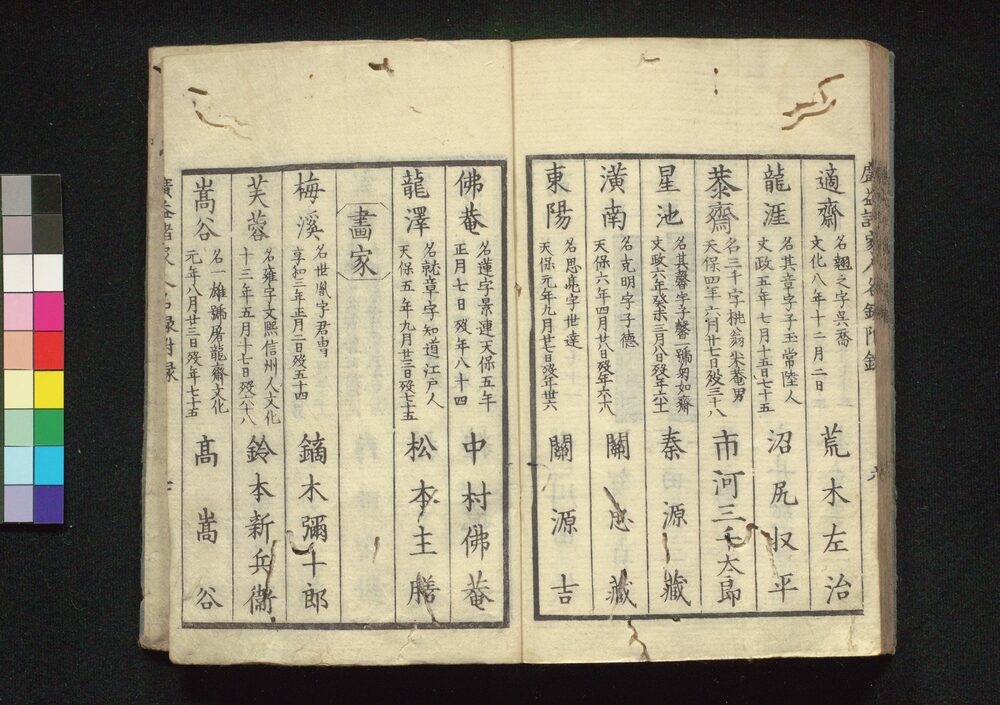 適齋 名翹之字呉喬
文化八年十二月二日 荒木左治
龍涯 名其章字子玉常陸人
文政五年七月十五日七十五 沼尻収平
恭齋 名三千字桃翁米菴男
天保四年六月廿七日歿三十八 市河三千太郎
星池 名其馨字子馨一號菊如齋
文政六年癸未三月八日歿年六十一 秦源藏
潢南 名克明字子德
天保六年四月廿八日歿年六十八 關忠藏
東陽 名思亮字世達
天保元年九月廿七日歿年卅六 關源吉
佛菴 名蓮字景連天保五年
正月七日歿年八十四 中村佛菴
龍澤 名就章字知道江戸人
天保五年九月廿三日歿七十五 松本主膳
畫家
梅溪 名世胤字君冑
享和三年正月二日歿五十四 鏑木彌十郎
芙蓉 名雍字文熙信州人文化
十三年五月十七日歿六十八 鈴木新兵衞
嵩谷 名一雄號屠龍齋文化
元年八月廿三日歿年七十五 高嵩谷
廣益諸家人名録附録